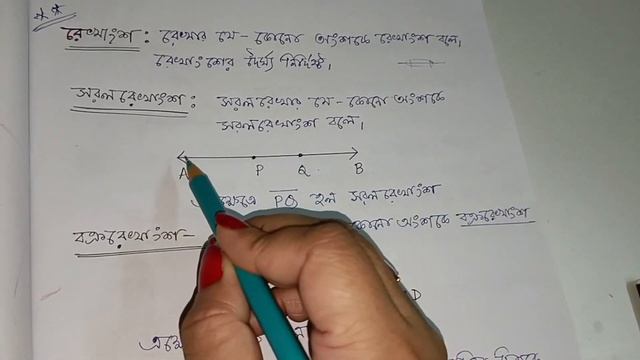 রেখাংশ : রেখার যে-কোনো অংশকে রেখাংশ বলে।
রেখাংশের দৈর্ঘ্য নির্দিষ্ট।
সরলরেখাংশ : সরলরেখার যে-কোনো অংশকে
সরলরেখাংশ বলে।
A P Q B
PQ হল সরলরেখাংশ
বক্ররেখাংশ - কোনো অংশকে বক্ররেখাংশ
D